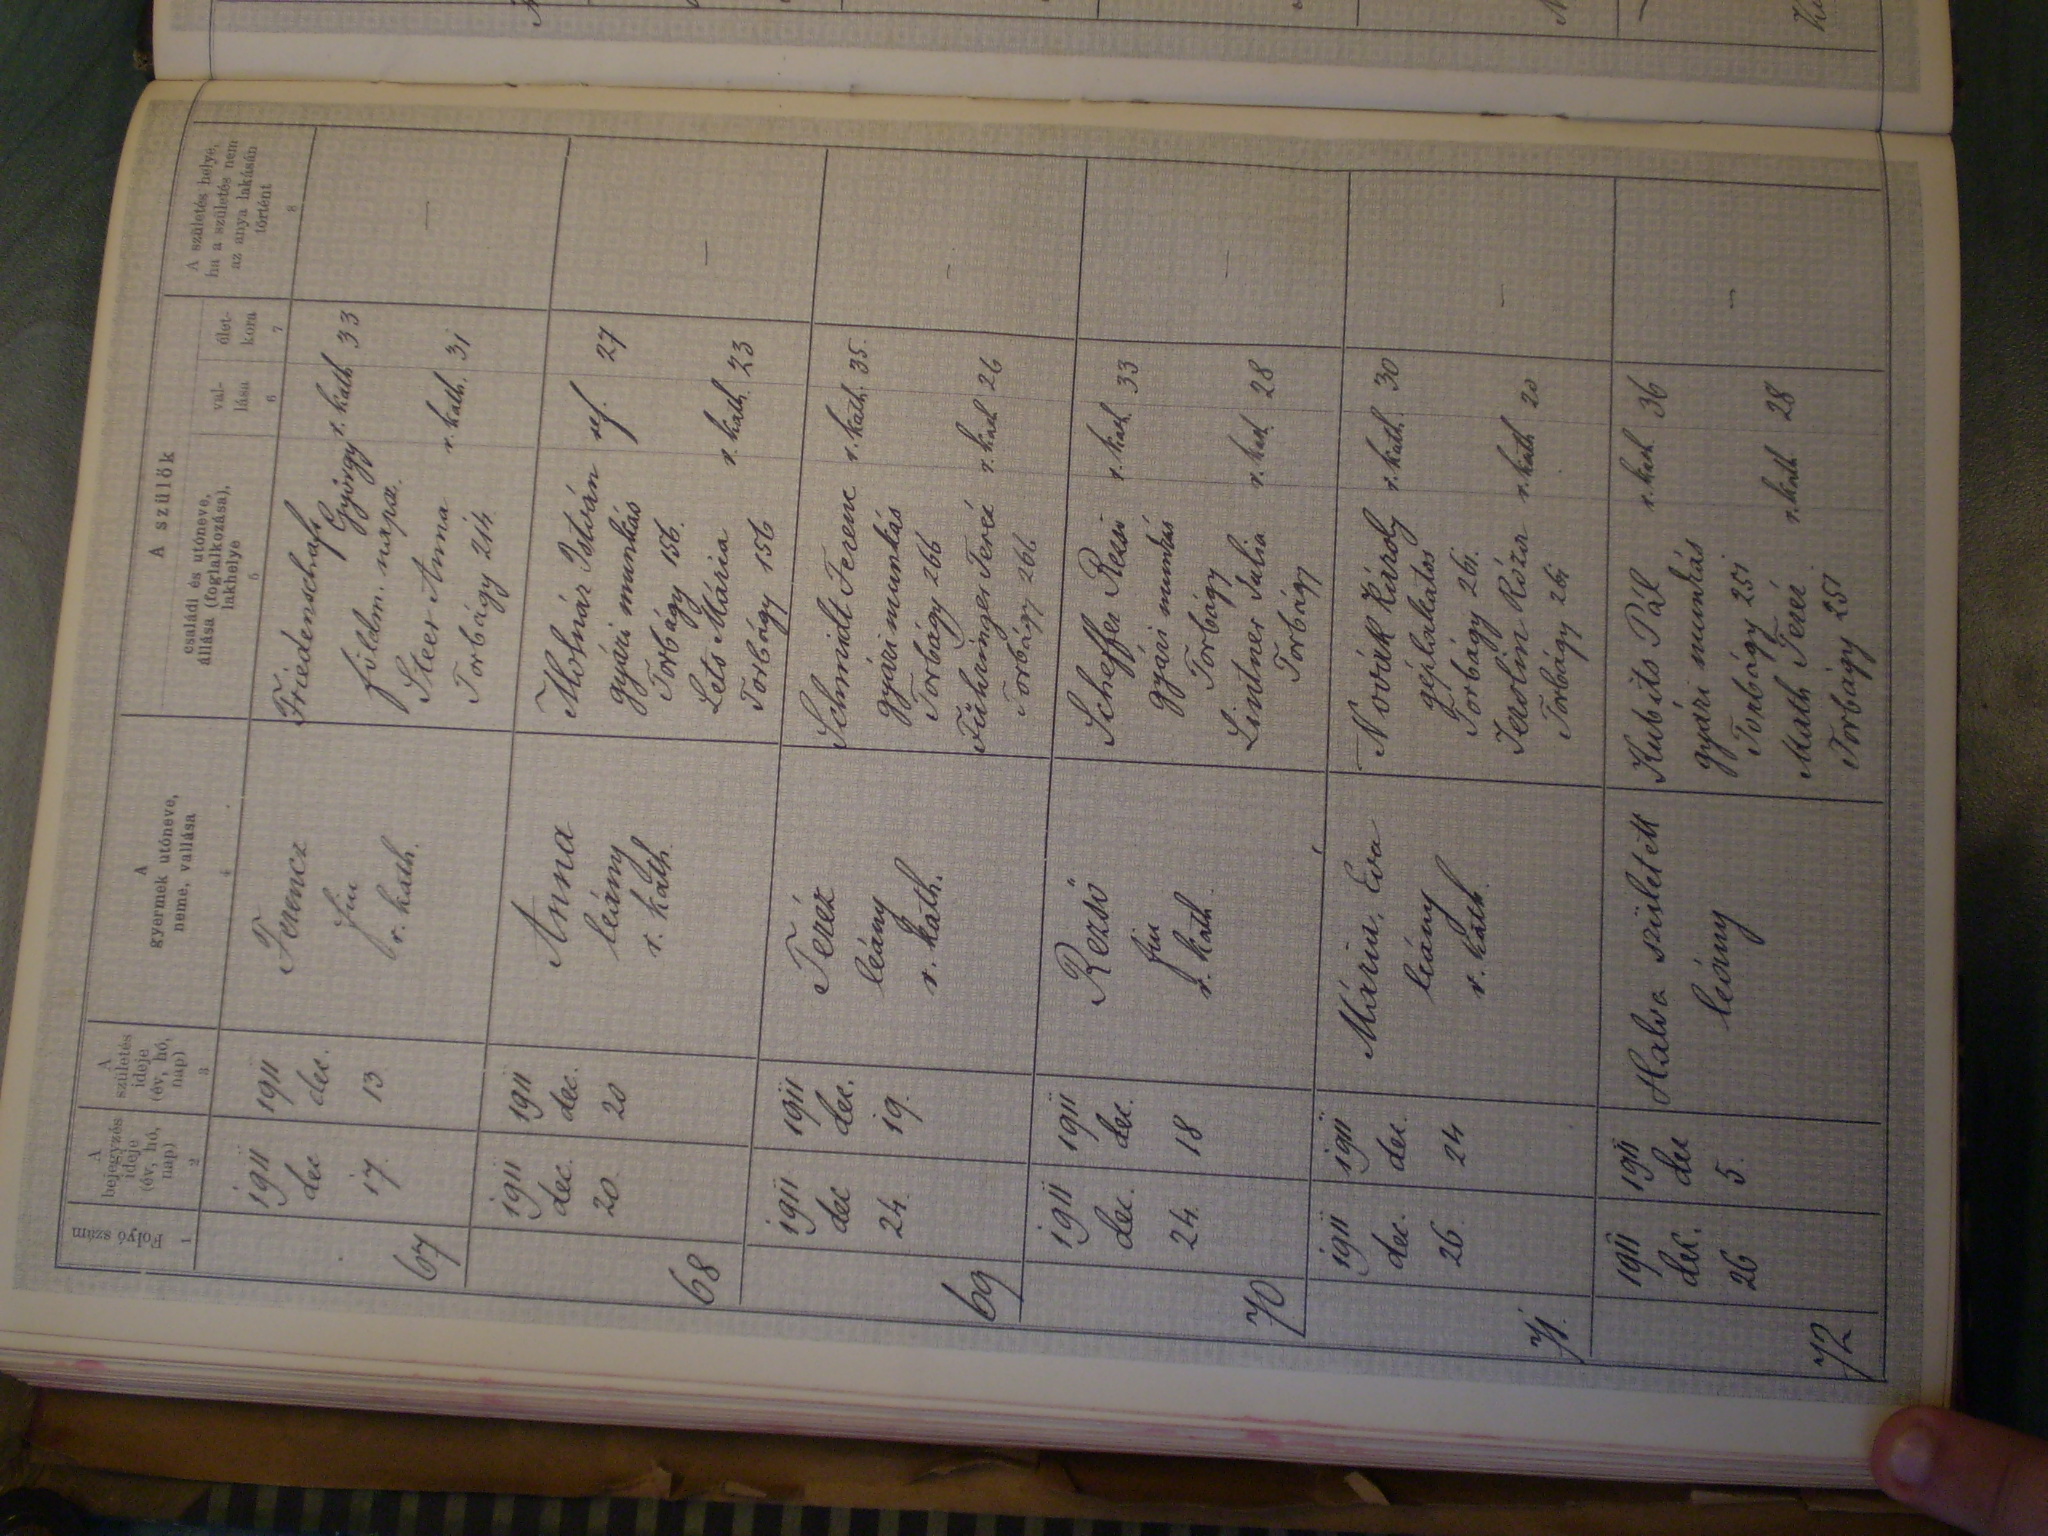 Folyó szám
A bejegyzés ideje (év, hó, nap)
A születés ideje (év, hó, nap)
A gyermek utóneve, neme, vallása
A szülők
családi és utóneve, állása (foglalkozása), lakhelye
val-lása
élet-kora
A születés helye, ha a születés nem az anya lakásán történt
1 2 3 4 5 6 7 8
67
1911 dec 17.
1911 dec. 13
Ferencz
fiu
r. kath.
Friedenschaft
György r. kath 33
földm. napsz.
Steer Anna r. kath. 31
Torbágy 214
—
68
1911 dec. 20.
1911 dec. 20
Anna
leány
r. kath.
Molnár István ref. 27
gyári munkás
Torbágy 156.
Lets Mária r. kath. 23
Torbágy 156
—
69
1911 dec 24.
1911 dec. 19.
Teréz
leány
r. kath.
Schmidt Ferenc r. kath. 35.
gyári munkás
Torbágy 266
Führinger Teréz r. kath 26
Torbágy 266
—
70
1911 dec. 24.
1911 dec. 18
Rezső
fiu
r. kath
Scheffer Rezső r. kath. 33
gyári munkás
Torbágy
Lintner Julia r. kath. 28
Torbágy
—
71.
1911 dec. 26
1911 dec. 24
Mária, Éva
leány
r. kath.
Novák Károly r. kath. 30
géplakatos
Torbágy 261.
Róza r. kath 20
Torbágy 261
—
72
1911 dec. 26
1911 dec 5.
Halva született
leány
Kubits Pál r. kath 36
gyári munkás
Torbágy 251
Math Teréz r. kath 28
Torbágy 251
—